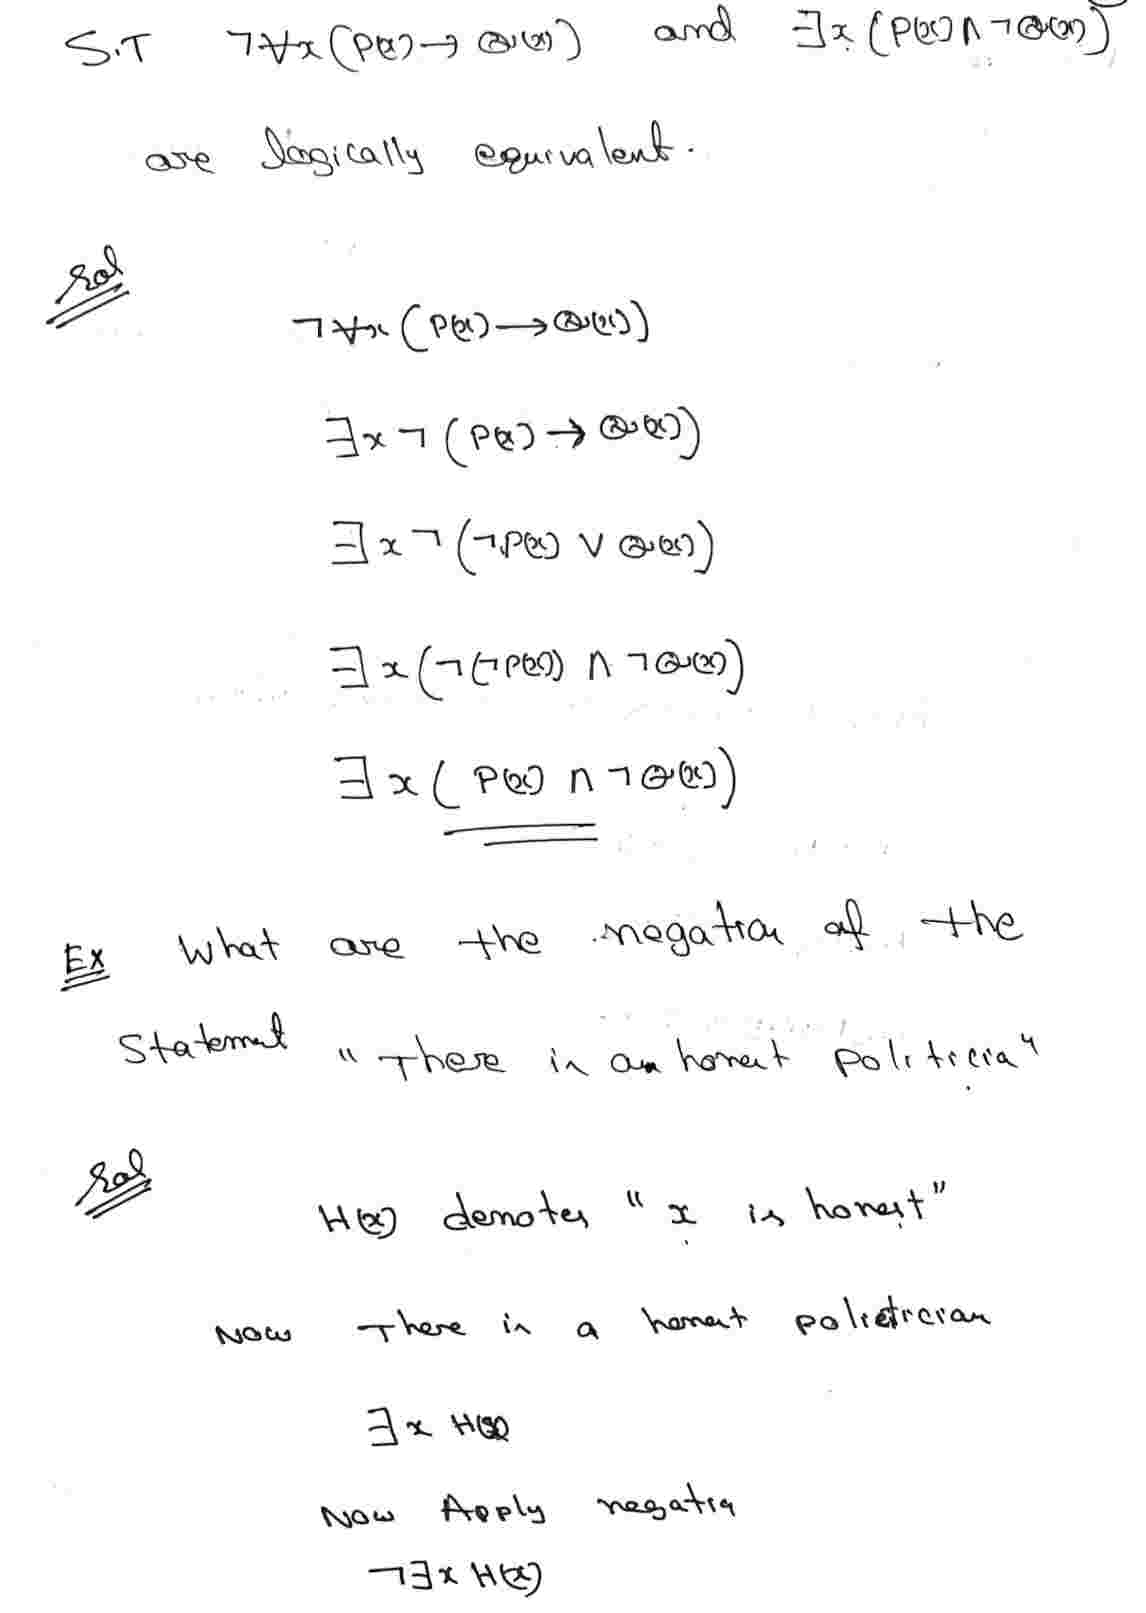 S.T ¬∀x(P(x)→Q(x)) and ∃x(P(x)∧¬Q(x))
are logically equivalent.
Sol
¬∀x(P(x)→Q(x))
∃x¬(P(x)→Q(x))
∃x¬(¬P(x)∨Q(x))
∃x(¬(¬P(x))∧¬Q(x))
∃x(P(x)∧¬Q(x))
Ex What are the negation of the
Statement "There is an honest politicia"
Sol
H(x) denotes "x is honest"
Now There is a honest politician
∃x H(x)
Now Apply negation
¬∃x H(x)